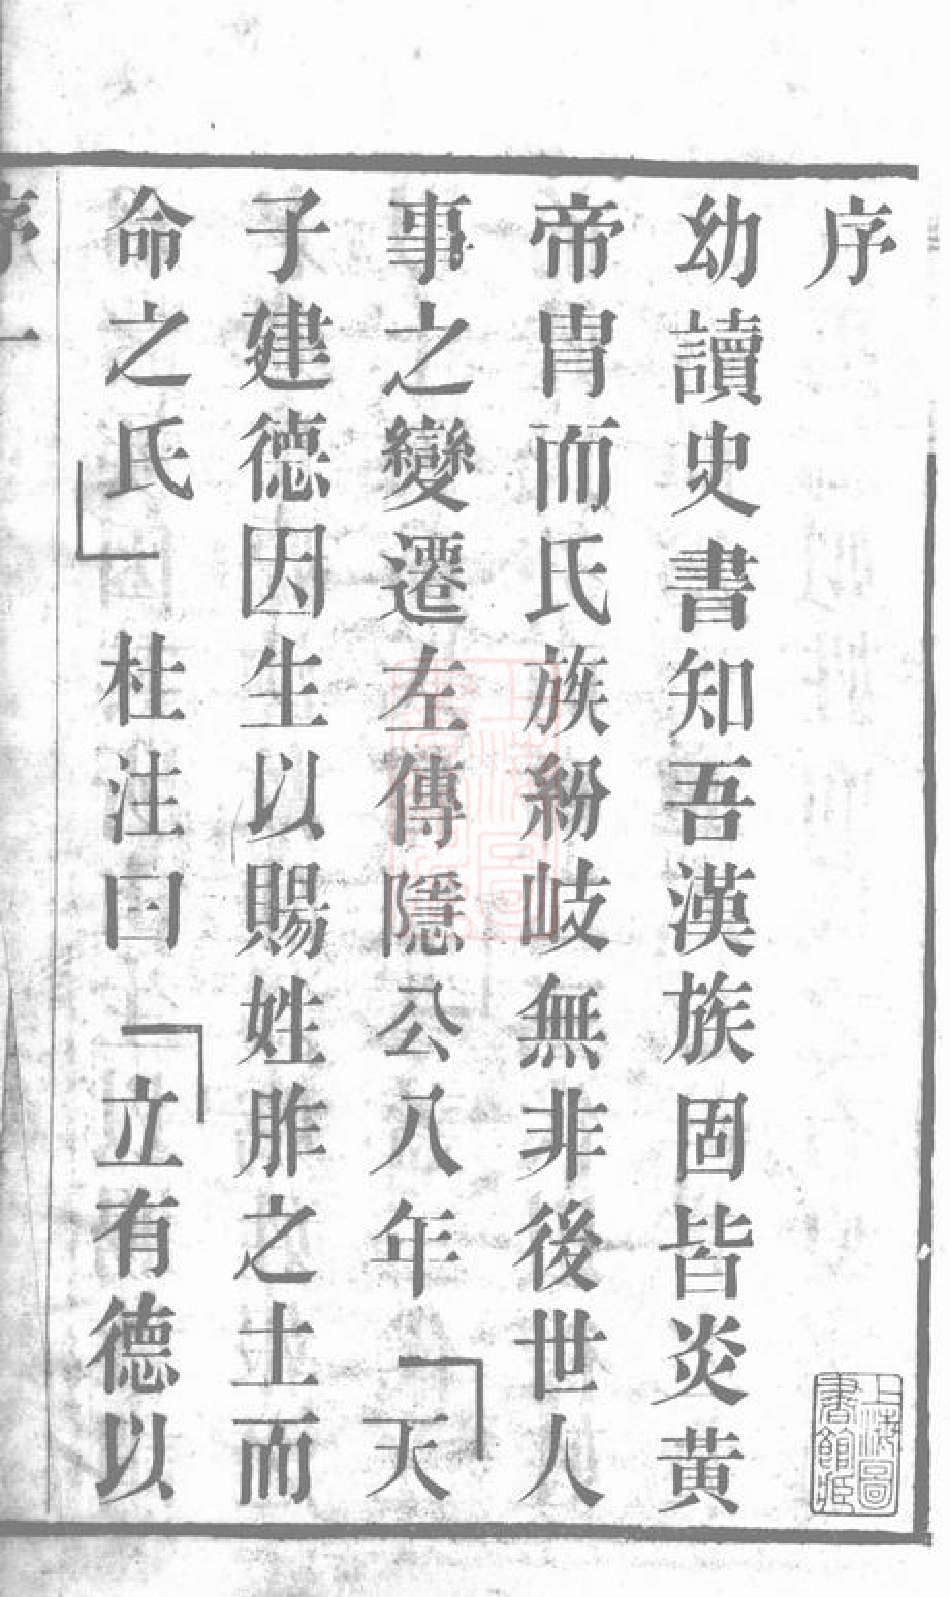 序
幼讀史書知吾漢族固皆炎黃
帝胄而氏族紛岐無非後世人
事之變遷左傳隱公八年「天
子建德因生以賜姓胙之土而
命之氏」杜注曰「立有德以
序一
上海圖書館藏